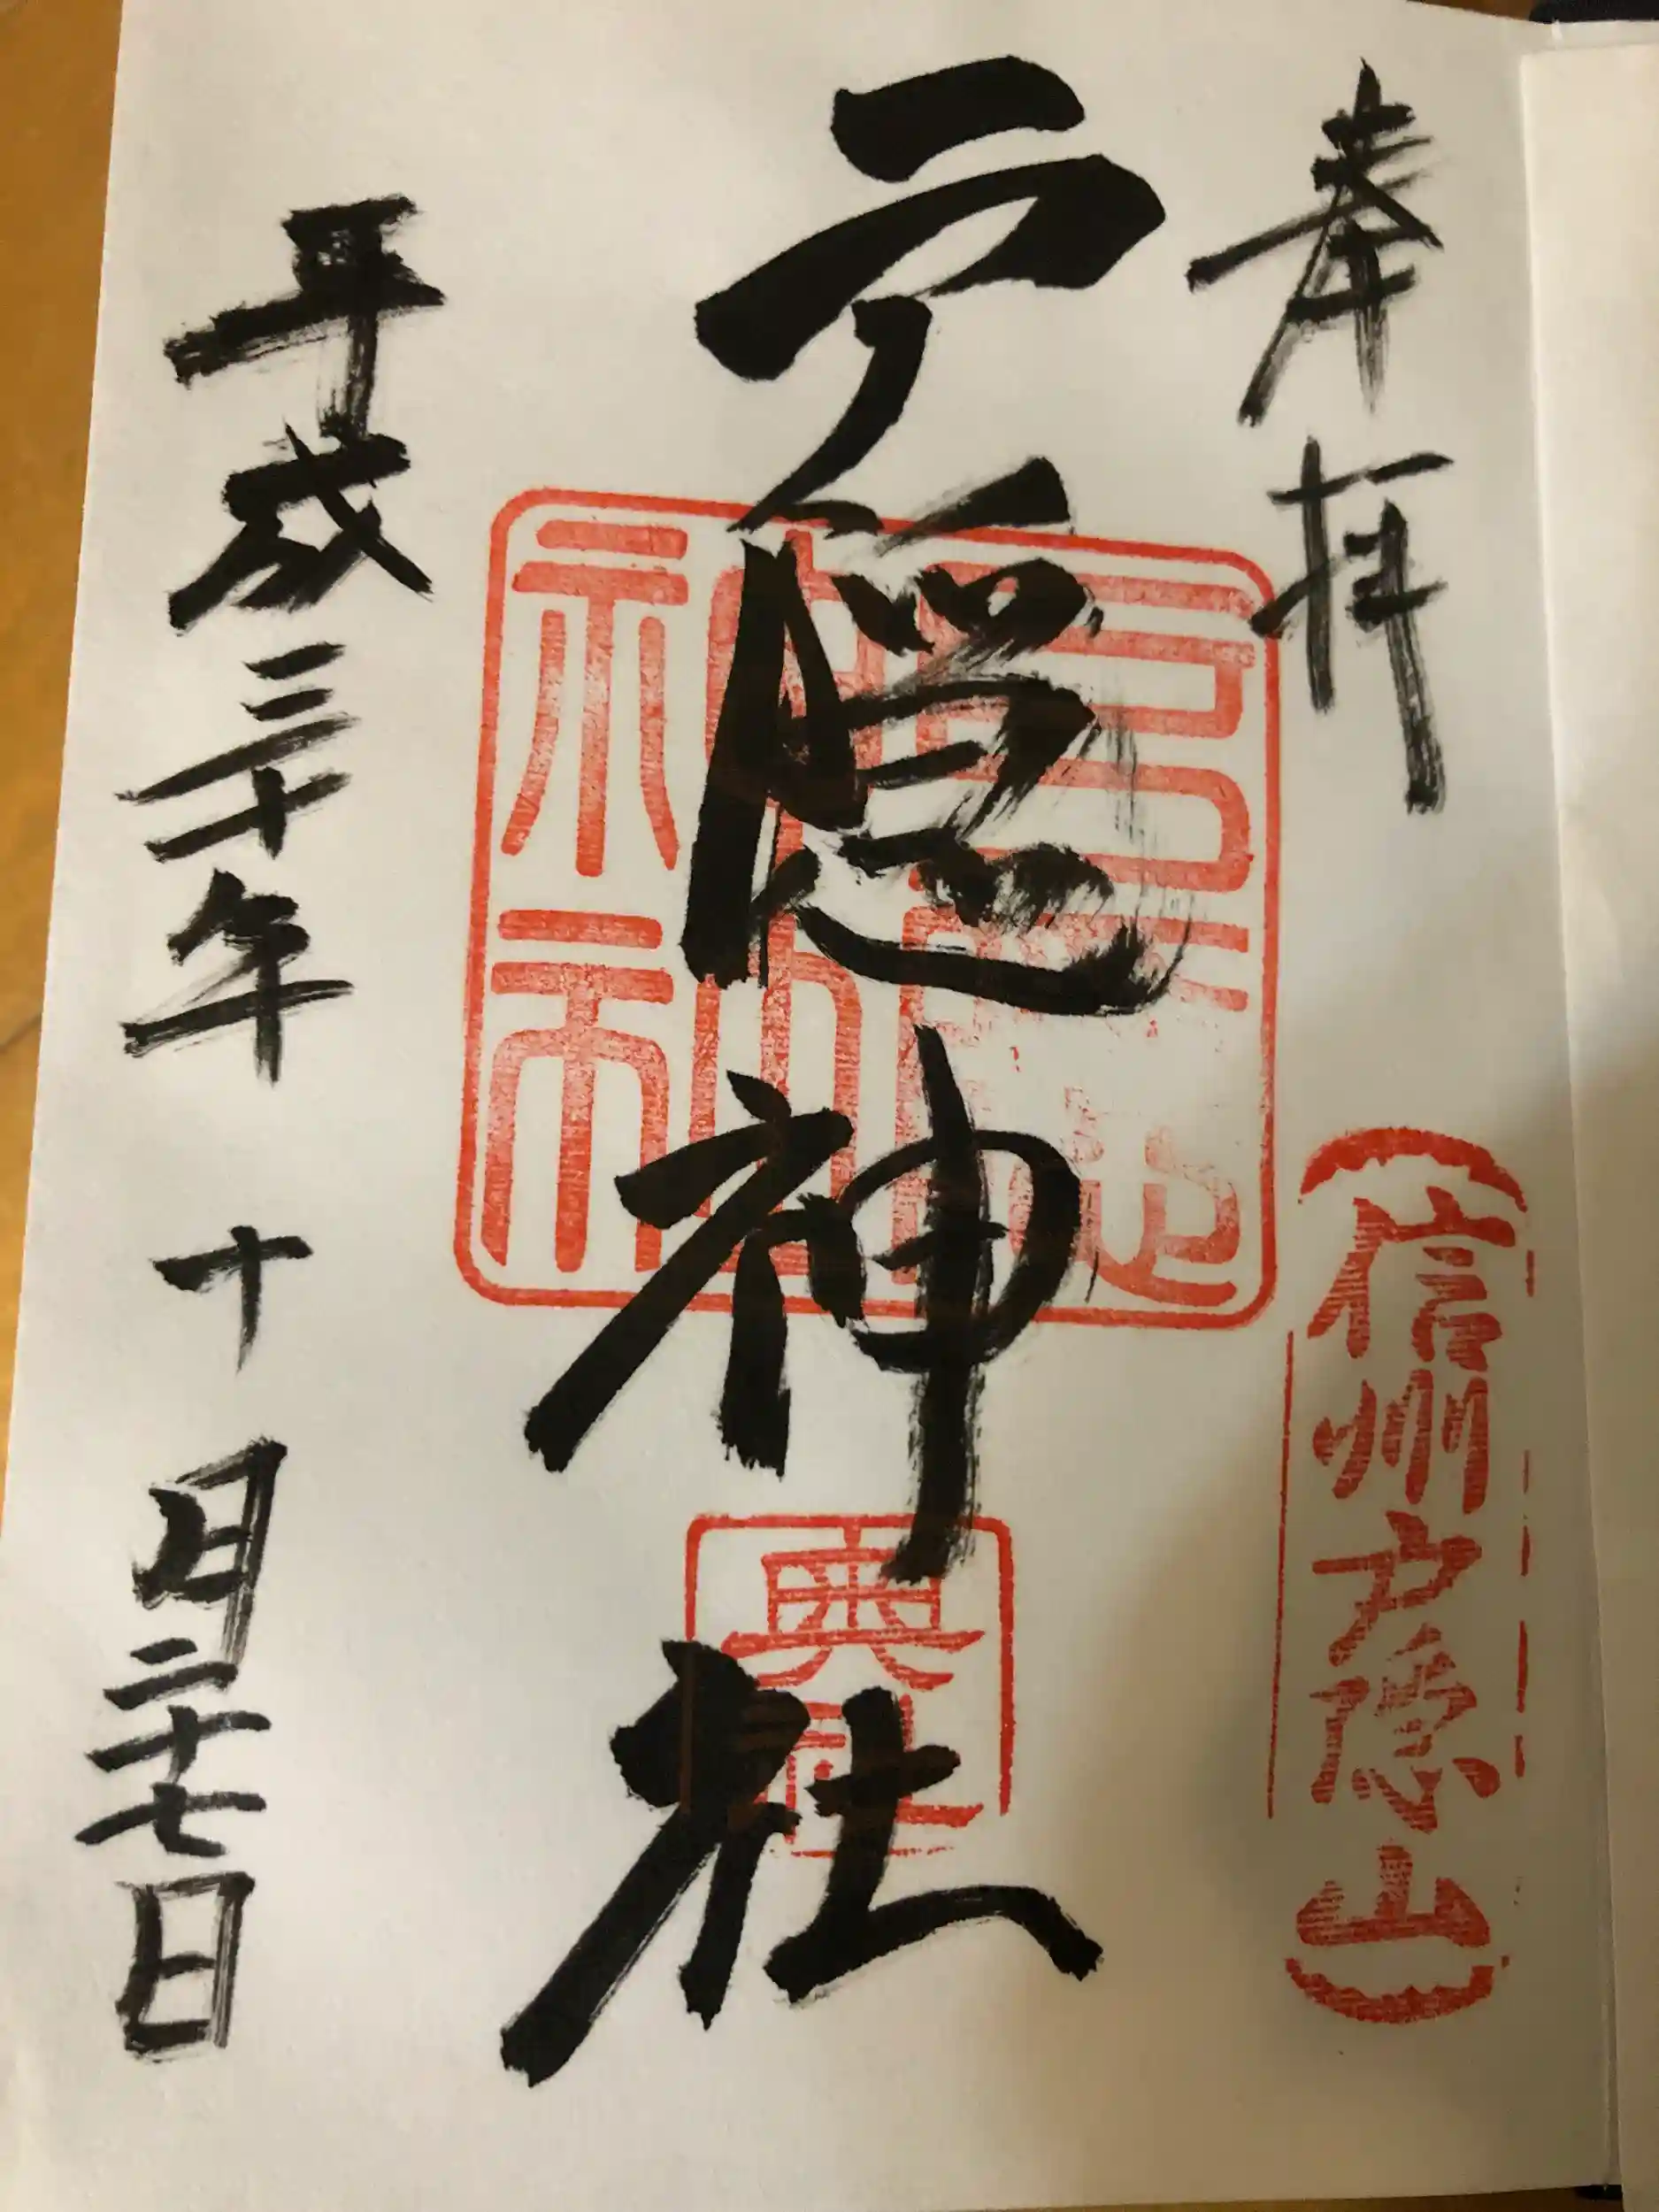 奉拝
信州戸隠山
戸隠神社
奥社
平成三十年 十月二十七日